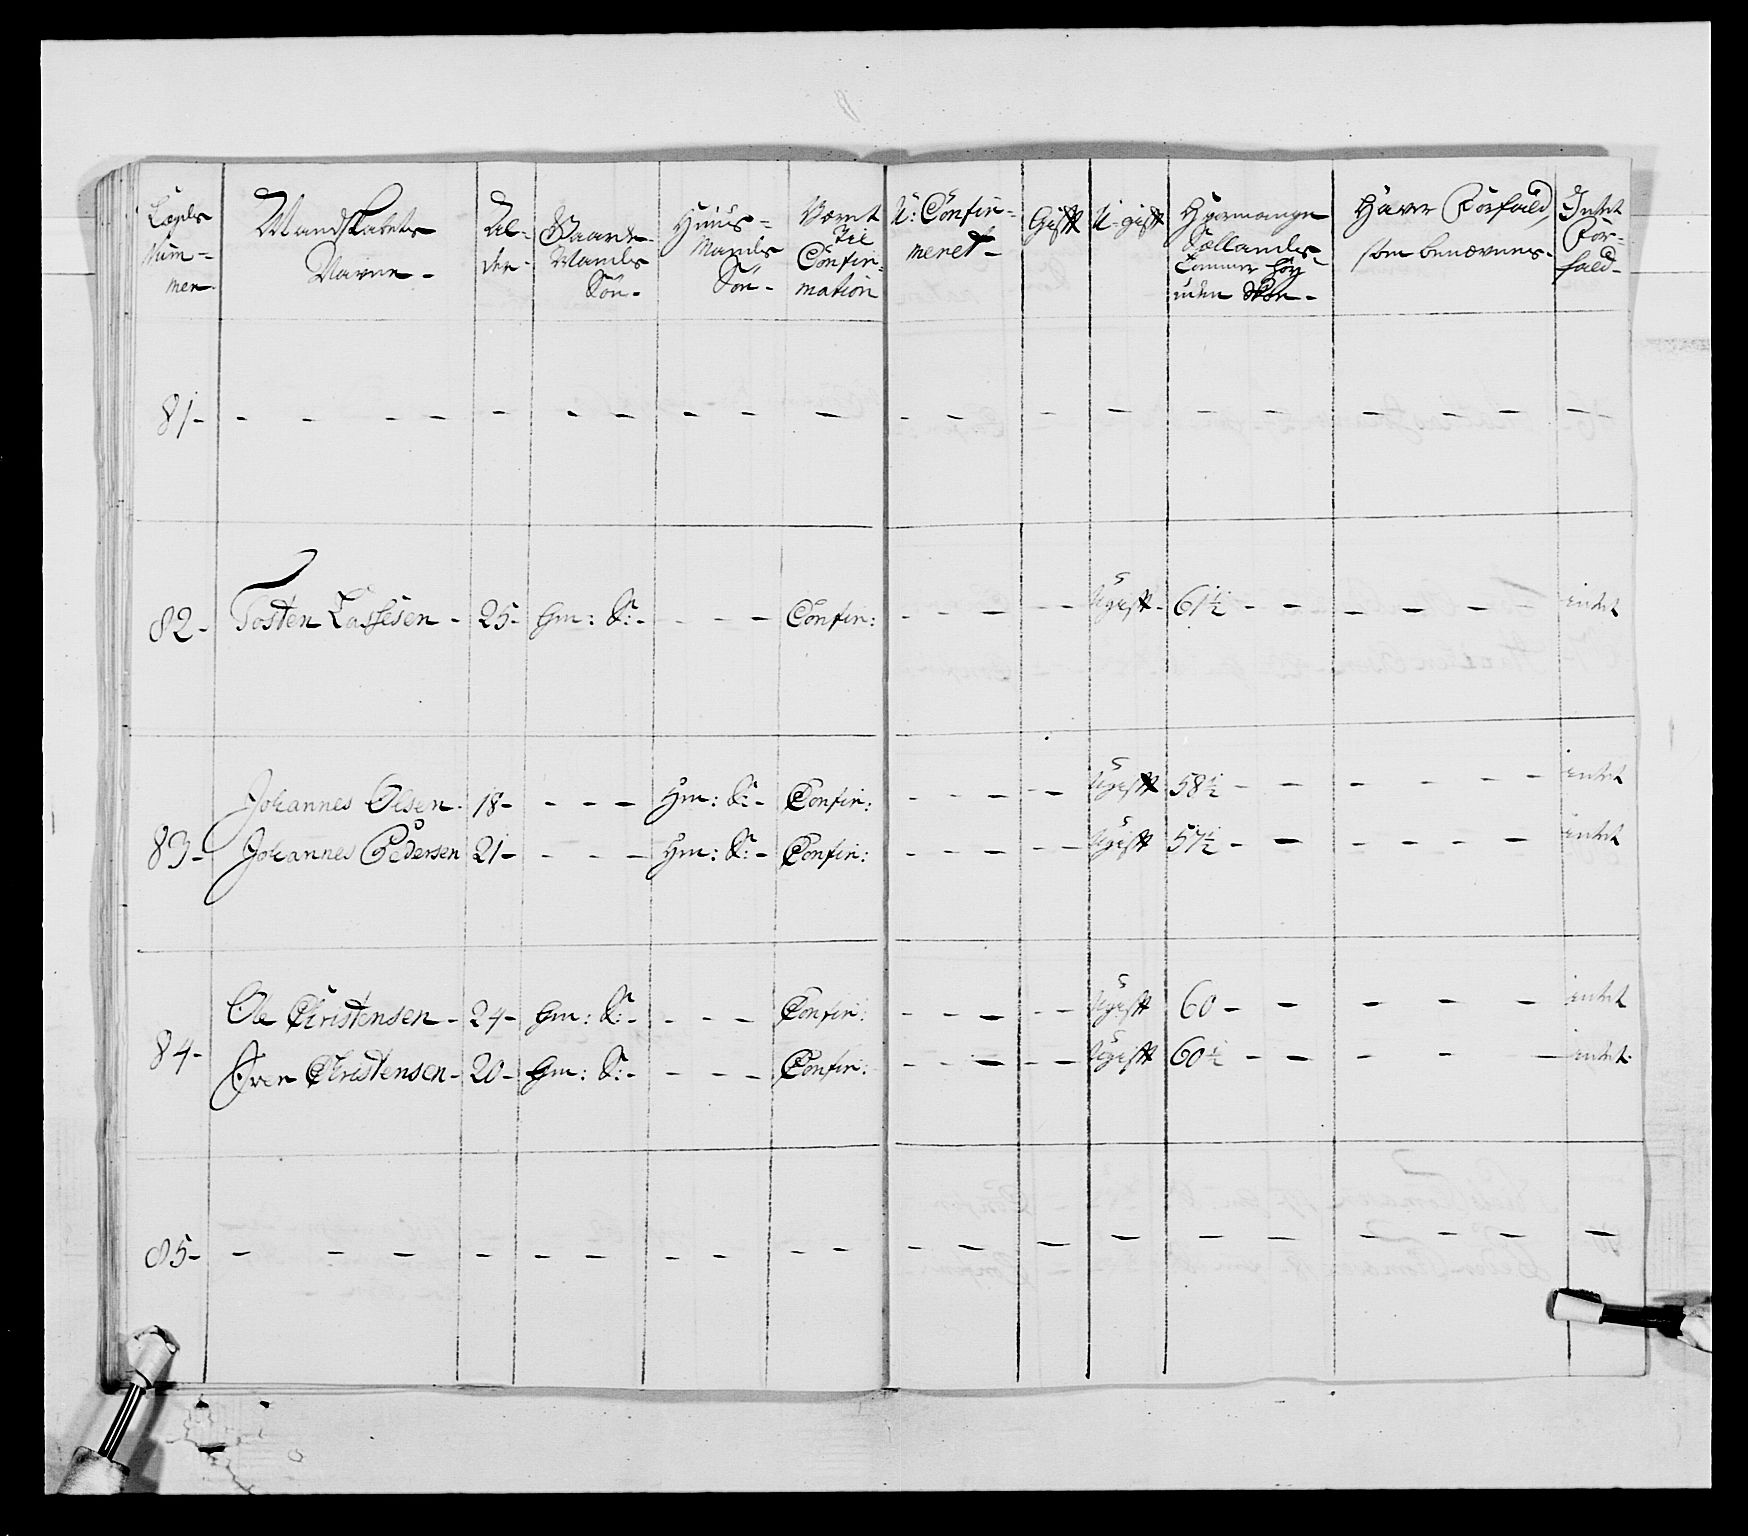 Lægds Num- mer.
Mandskabets Navne -
Al- der -
Gaard- Mands Søn -
Huus- Mands Søn -
Været til Confir- mation
U: Confir- meret -
Gift
U-gift
Hvormange Sællands Tommer høy uden Skoe -
Haver Forfald, som benævnes -
Intet For- fald -
81 - - - - - - - - - - - - - - - - - - - - -
82 - Tosten Lassesen - 25 - Gm: S: - - - - - Confir: - - - - - Ugift - 61½ - - - - - - intet
Johannes Olsen - 18 - - - - Hm: S: - Confir: - - - - - Ugift 58½ - - - - - - intet
83 - Johannes Pedersen 21 - - - - Hm: S: - Confir: - - - - - Ugift 57½ - - - - - - intet
Ole Christensen - 24 - Gm: S: - - - - - Confir: - - - - - Ugift 60 - - - - - intet
84 -
Iver Christensen - 20 - Gm: S: - - - - - Confir: - - - - - Ugift 60½ - - - - - intet
85 - - - - - - - - - - - - - - - - - - - - -